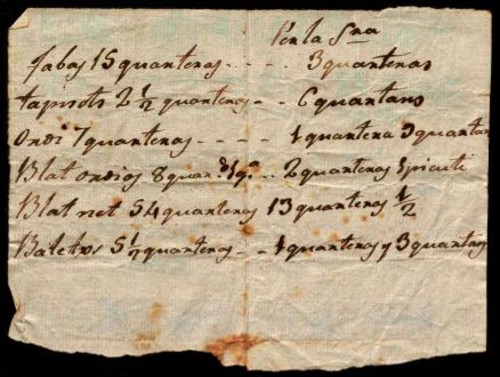 Per la Sra
fabas 15 quarteras - - - - 3 quarteras
tapisots 2 1/2 quarteras - - 6 quartans
Ordi 7 quarteras - - - - 1 quartera 9 quartans
Blat ordios 8 quar.s - - 2 quarteras 1 picuti
Blat net 54 quarteras 13 quarteras 1/2
Batetxos 5 1/2 quarteras - - 1 quarteras y 3 quartans